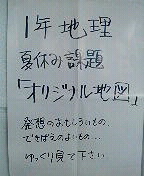 1年地理
夏休み課題
「オリジナル地図」
発想のおもしろいもの、
できばえのよいもの…
ゆっくり見て下さい